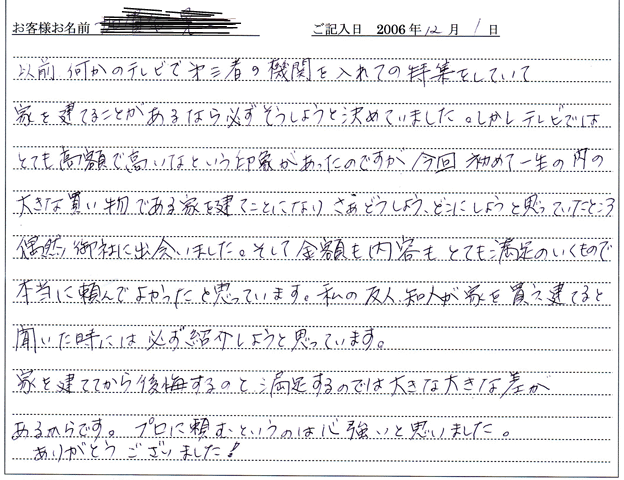 お客様お名前 ご記入日 2006年 12月 1日
以前 何かのテレビで 第三者の機関を入れての特集をしていて
家を建てることがあるなら必ずそうしようと決めていました。しかしテレビでは
とても高額で高いなという印象があったのですが 今回 初めて一生の内の
大きな買い物である家を建てることになり さあどうしよう、どこにしようと思っていたところ
偶然、御社に出会いました。そして金額も内容も とても満足のいくもので
本当に頼んでよかったと思っています。私の友人、知人が家を買え建てると
聞いた時には 必ず紹介しようと思っています。
家を建ててから後悔するのと、満足するのでは大きな大きな差が
あるからです。 プロに頼むというのは心強いと思いました。
ありがとうございました！